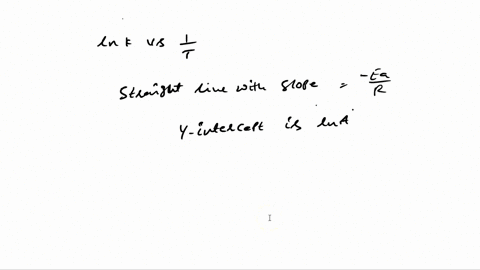 ln k vs 1/T
Straight line with slope = -Ea/R
Y-intercept is ln A